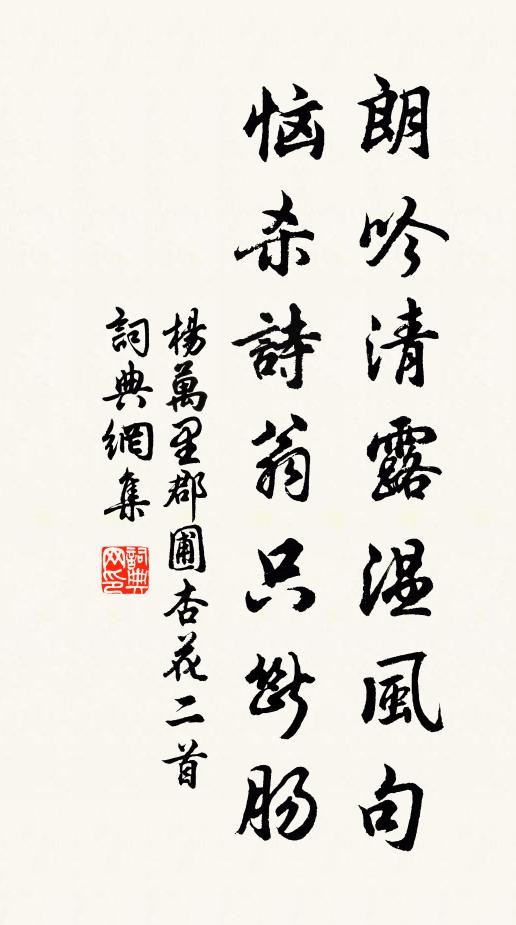 朗吟清露湿風句
恼杀詩翁只断肠
楊萬里郡圃杏花二首
詞典網集
詞典网印